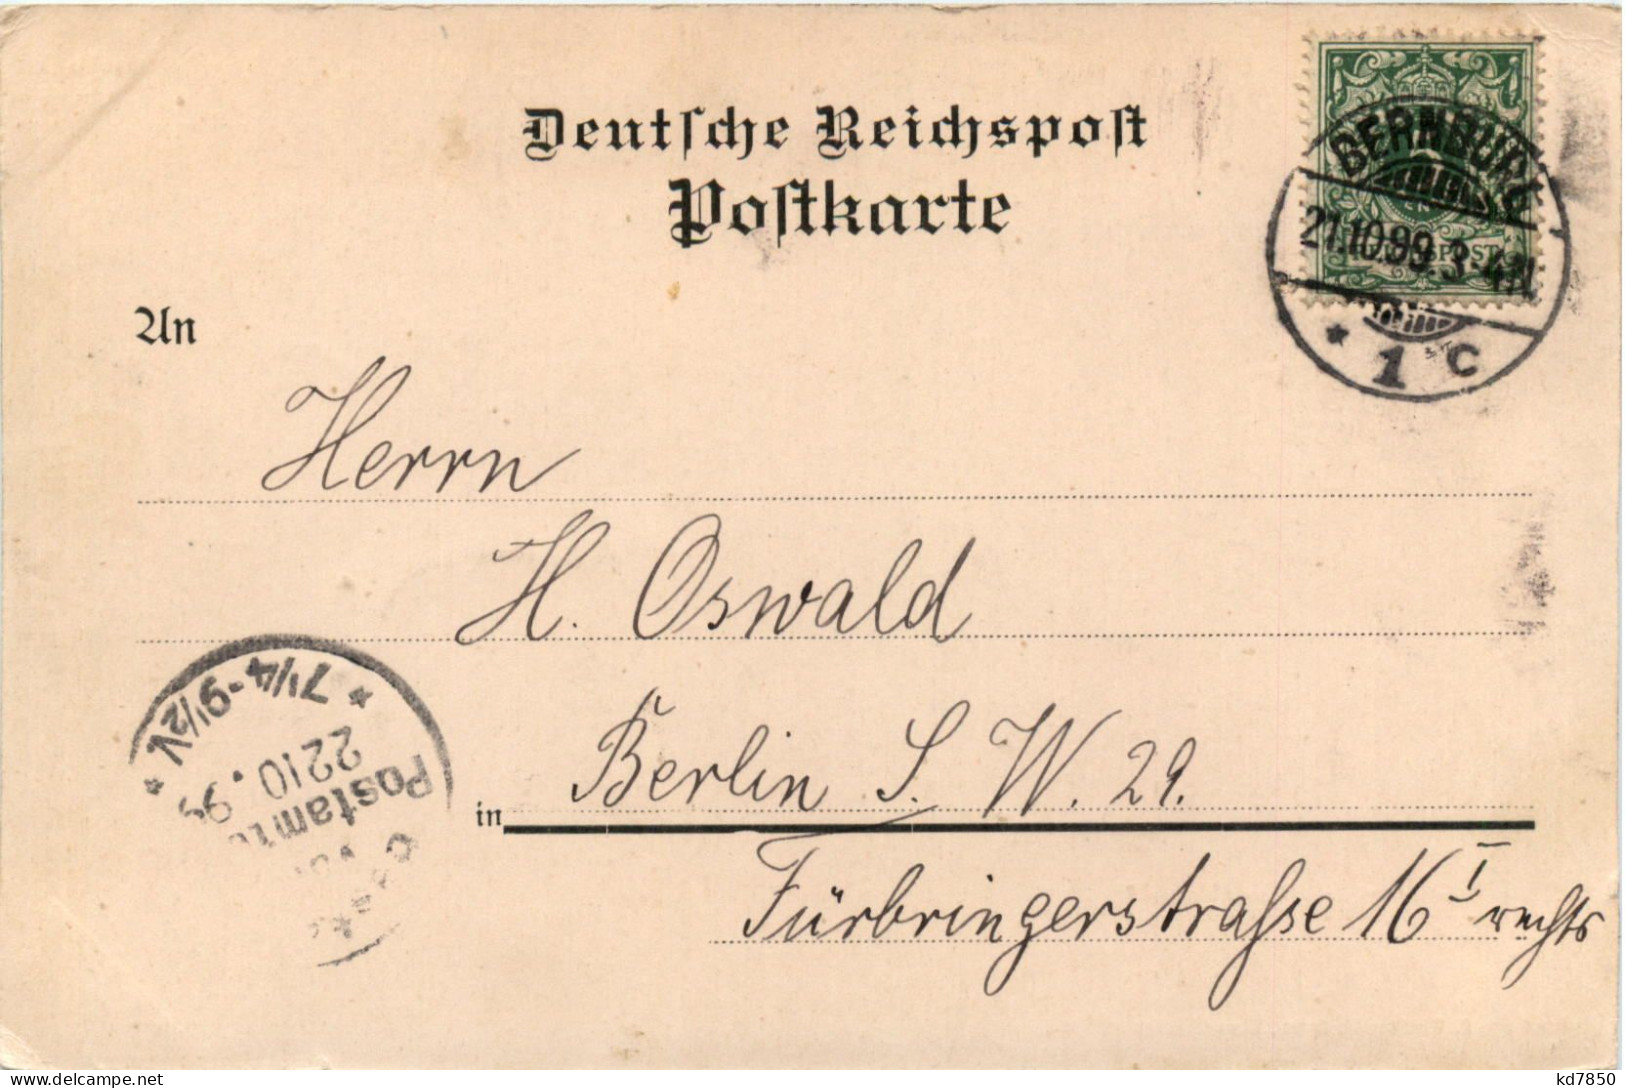 Deutsche Reichspost
Postkarte
BERNBURG
21.10.99. 3-4N.
* 1 c
An
Herrn
H. Oswald
in Berlin S. W. 29.
Fürbringerstrasse 16 I rechts
* 7 1/4-9 1/2V. *
22 10. 99
Postamt
kd7850